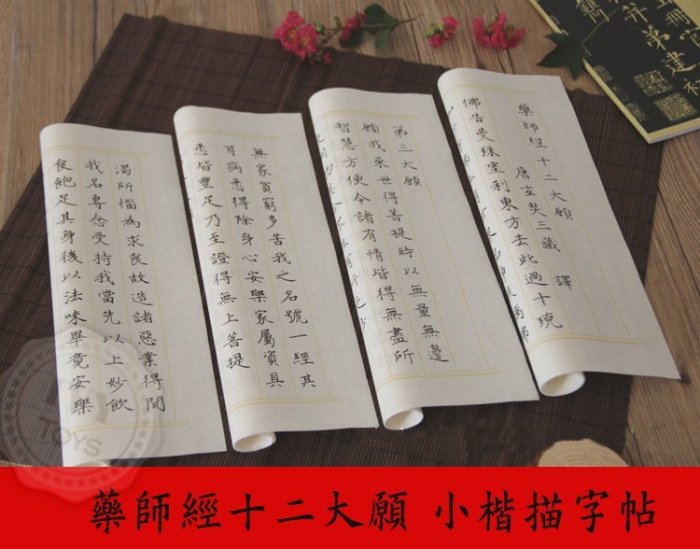 藥師經十二大願
唐玄奘三藏 譯
佛告曼殊室利東方去此過十殑
第三大願
願我來世得菩提時以無量無邊
智慧方便令諸有情皆得無盡所
無家貧窮多苦我之名號一經其
耳病悉得除身心安樂家屬資具
悉皆豐足乃至證得無上菩提
渴所惱為求食故造諸惡業得聞
我名專念受持我當先以上妙飲
食飽足其身後以法味畢竟安樂
TOYS
藥師經十二大願 小楷描字帖